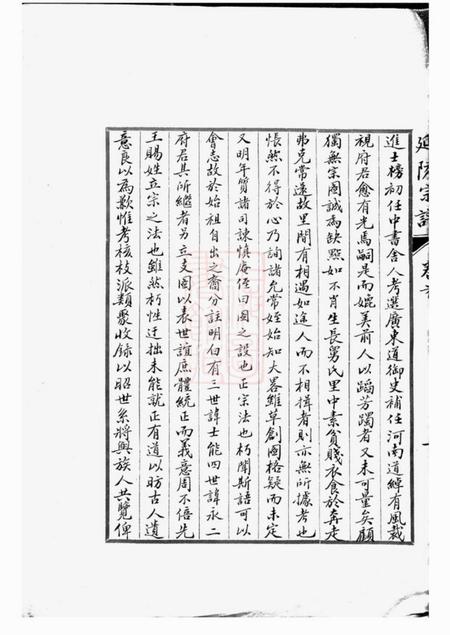 延陵宗譜 卷首
進士榜初任中書舍人考選廣東道御史補任河南道綽有風裁
視府君愈有光焉嗣是而媲美前人以蹈芳躅者又未可量矣顧
獨無宗圖誠為缺點如不肖生長舅氏里中素貧賤衣食於奔走
弗克常遠故里間有相遇如途人而不相揖者則亦無所據考也
悵然不得於心乃詢諸允常姪始知大畧雖草創圖格疑而未定
又明年質諸司諫慎庵侄曰圖之設也正宗法也朽聞斯語可以
會志故於始祖自出之裔分註明白有三世諱士能四世諱永二
府君其所繼者另立支圖以表世誼庶體統正而義意周不倍先
王賜姓立宗之法也雖然朽性迂拙未能就正有道以昉古人遺
意良以為歉惟考核枝派類聚收錄以昭世系將與族人共覽俾